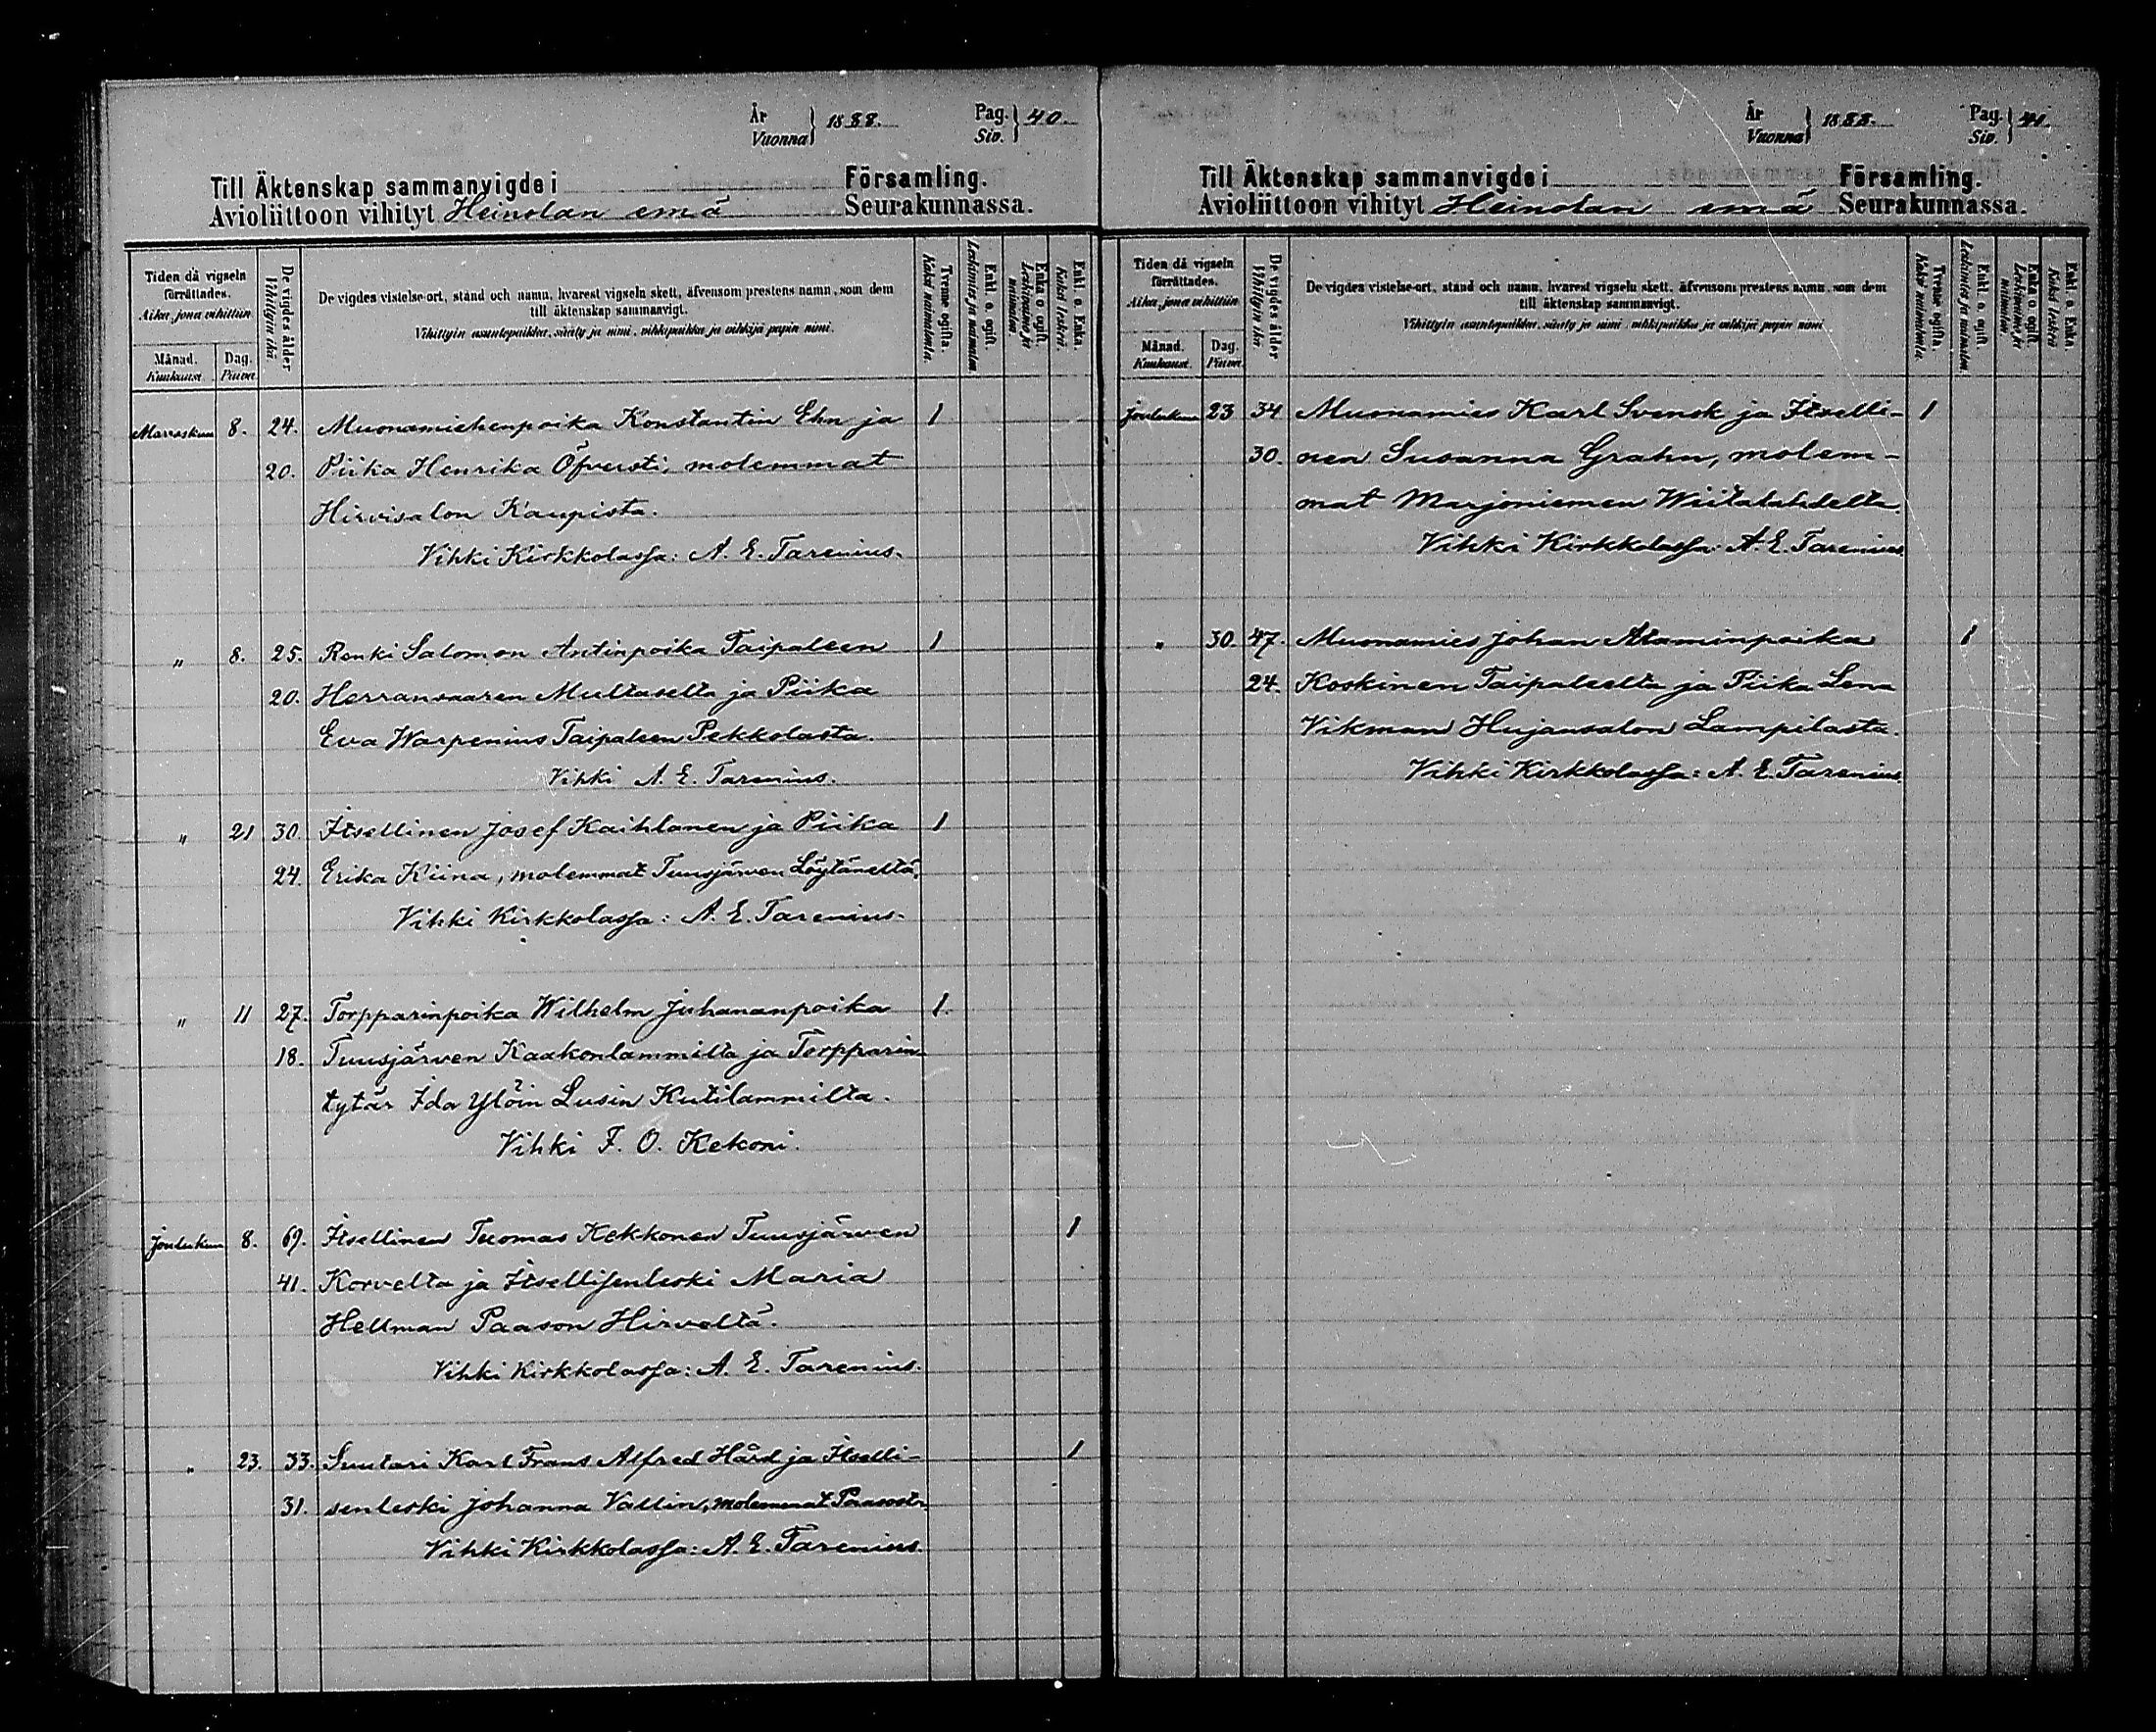 År
Vuonna } 1888.
Pag.
Siv. } 40.
Till Äktenskap sammanvigde i Församling.
Avioliittoon vihityt Heinolan emä Seurakunnassa.
Tiden då vigseln förrättades.
Aika, jona vihittiin
Månad.
Kuukausi.
Dag.
Päivä
De vigdes ålder
Vihittyin ikä.
De vigdes vistelse-ort, stånd och namn, hvarest vigseln skett, äfvensom prestens namn, som dem
till äktenskap sammanvigt.
Vihittyin asuntopaikka, sääty ja nimi, vihkipaikka ja vihkijä papin nimi.
Tvenne ogifta.
Kaksi naimatonta.
Enkl. o. ogift.
Leskimies ja naimaton.
Enka o. ogift.
Leskivaimo ja naimaton
Enkl. o. Enka.
Kaksi leskeä.
Marraskuu 8. 24. Muonamiehenpoika Konstantin Ehn ja 1
20. Piika Henrika Öfversti, molemmat
Hirvisalon Kaupista.
Vihki Kirkkolassa: A. E. Tarenius.
„ 8. 25. Renki Salomon Antinpoika Taipaleen 1
20. Herransaaren Multaselta ja Piika
Eva Warpenius Taipaleen Pekkolasta.
Vihki A. E. Tarenius.
„ 21 30. Itsellinen Josef Kaihlanen ja Piika 1
24. Erika Kiina, molemmat Tuusjärven Löytäneltä.
Vihki Kirkkolassa: A. E. Tarenius.
„ 11 27. Torpparinpoika Wilhelm Juhananpoika 1.
18. Tuusjärven Kaakonlammilta ja Torpparin
tytär Ida Ylöin Lusin Kutilammilta.
Vihki F. O. Kekoni.
Joulukuu 8. 69. Itsellinen Tuomas Kekkonen Tuusjärven 1
41. Korvelta ja Itsellisenleski Maria
Hellman Paason Hirveltä.
Vihki Kirkkolassa: A. E. Tarenius.
„ 23. 33. Suutari Karl Frans Alfred Hård ja Itselli- 1
31. senleski Johanna Vallin, molemmat Paasosta.
Vihki Kirkkolassa: A. E. Tarenius.
År
Vuonna } 1888.
Pag.
Siv. } 41.
Till Äktenskap sammanvigde i Församling.
Avioliittoon vihityt Heinolan emä Seurakunnassa.
Tiden då vigseln förrättades.
Aika, jona vihittiin
Månad.
Kuukausi.
Dag.
Päivä
De vigdes ålder
Vihittyin ikä.
De vigdes vistelse-ort, stånd och namn, hvarest vigseln skett, äfvensom prestens namn, som dem
till äktenskap sammanvigt.
Vihittyin asuntopaikka, sääty ja nimi, vihkipaikka ja vihkijä papin nimi
Tvenne ogifta.
Kaksi naimatonta.
Enkl. o. ogift.
Leskimies ja naimaton.
Enka o. ogift.
Leskivaimo ja naimaton.
Enkl. o. Enka.
Kaksi leskeä
Joulukuu 23 34 Muonamies Karl Svensk ja Itselli- 1
30. nen Susanna Grahn, molem-
mat Marjoniemen Wiitalahdelta
Vihki Kirkkolassa: A. E. Tarenius.
„ 30. 47. Muonamies Johan Ataminpoika 1
24. Koskinen Taipaleelta ja Piika Lena
Vikman Hujansalon Lampilasta.
Vihki Kirkkolassa: A. E. Tarenius.